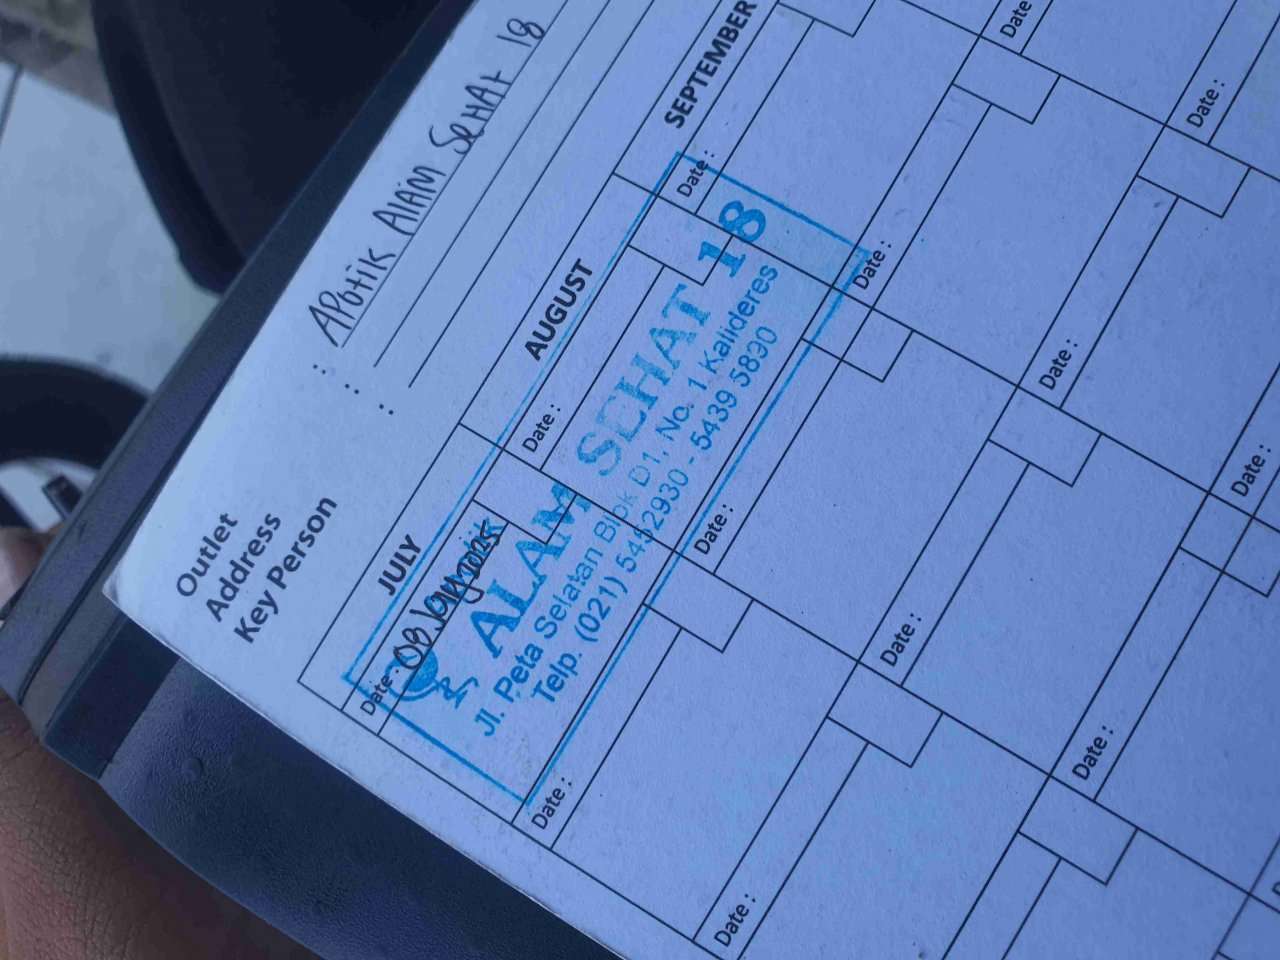 Outlet : APotik AlAiM SeHAt 18
Address :
Key Person :
JULY AUGUST SEPTEMBER
Date : Date : Date : Date :
ALAM SEHAT 18
Jl. Peta Selatan Blok D1, No. 1 Kalideres
Telp. (021) 5452930 - 5439 5830
Date : Date : Date : Date :
Date : Date : Date :
Date : Date :